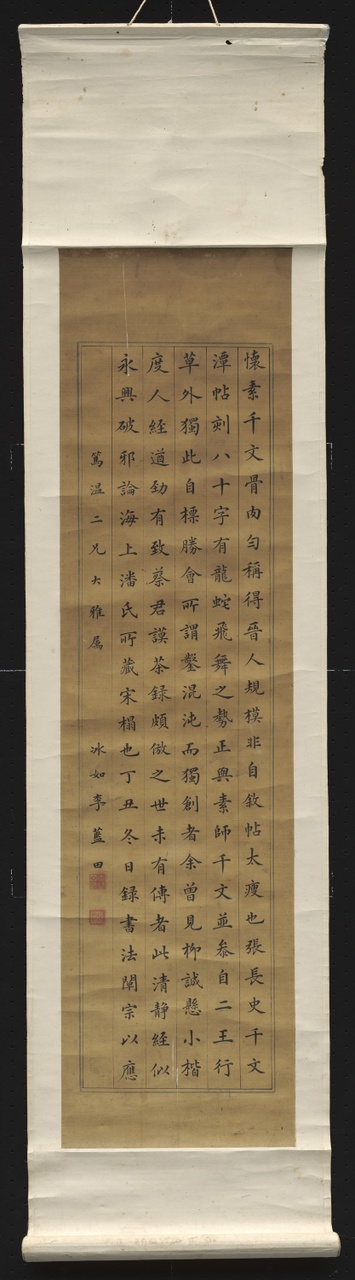 懷素千文骨肉勻稱得晉人規模非自敘帖太瘦也張長史千文
潭帖刻八十字有龍蛇飛舞之勢正與素師千文並叅自二王行
草外獨此自標勝會所謂鑿混沌而獨創者余曾見柳誠懸小楷
度人經遒勁有致蔡君謨茶錄頗倣之世未有傳者此清靜經似
永興破邪論海上潘氏所藏宋榻也丁丑冬日錄書法闡宗以應
篤溫二兄大雅屬
冰如李藍田